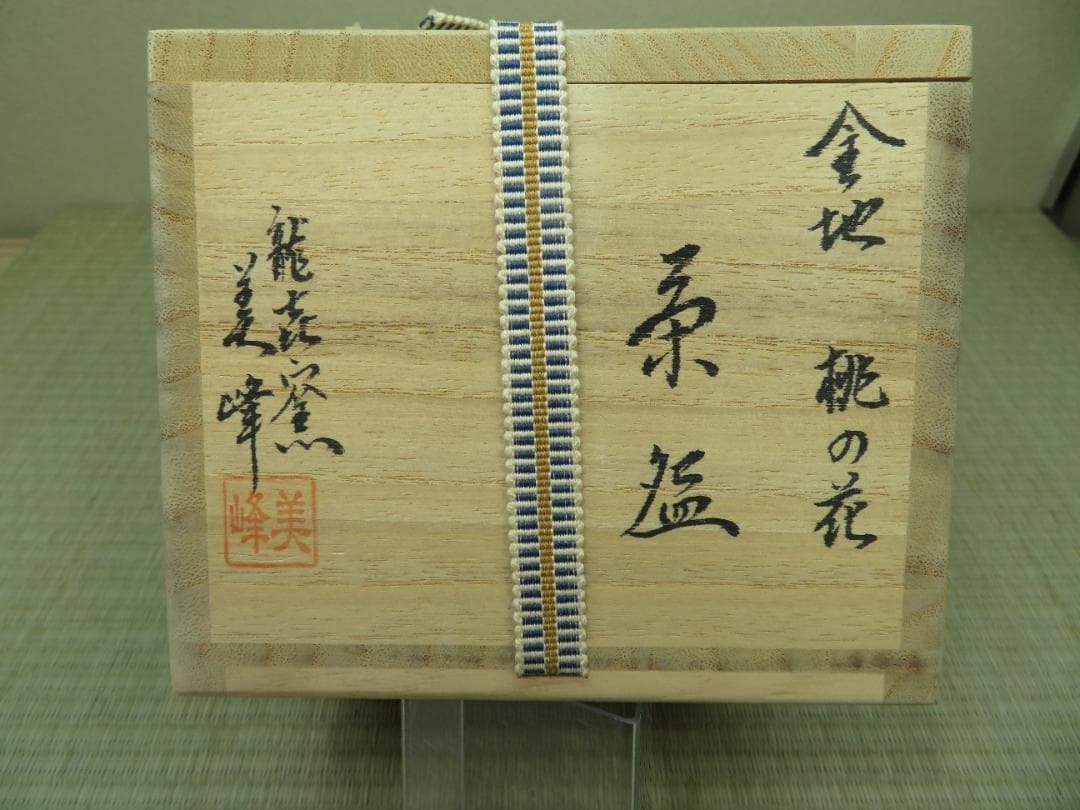 金地 桃の花
茶盌
龍喜窯
美峰
美峰